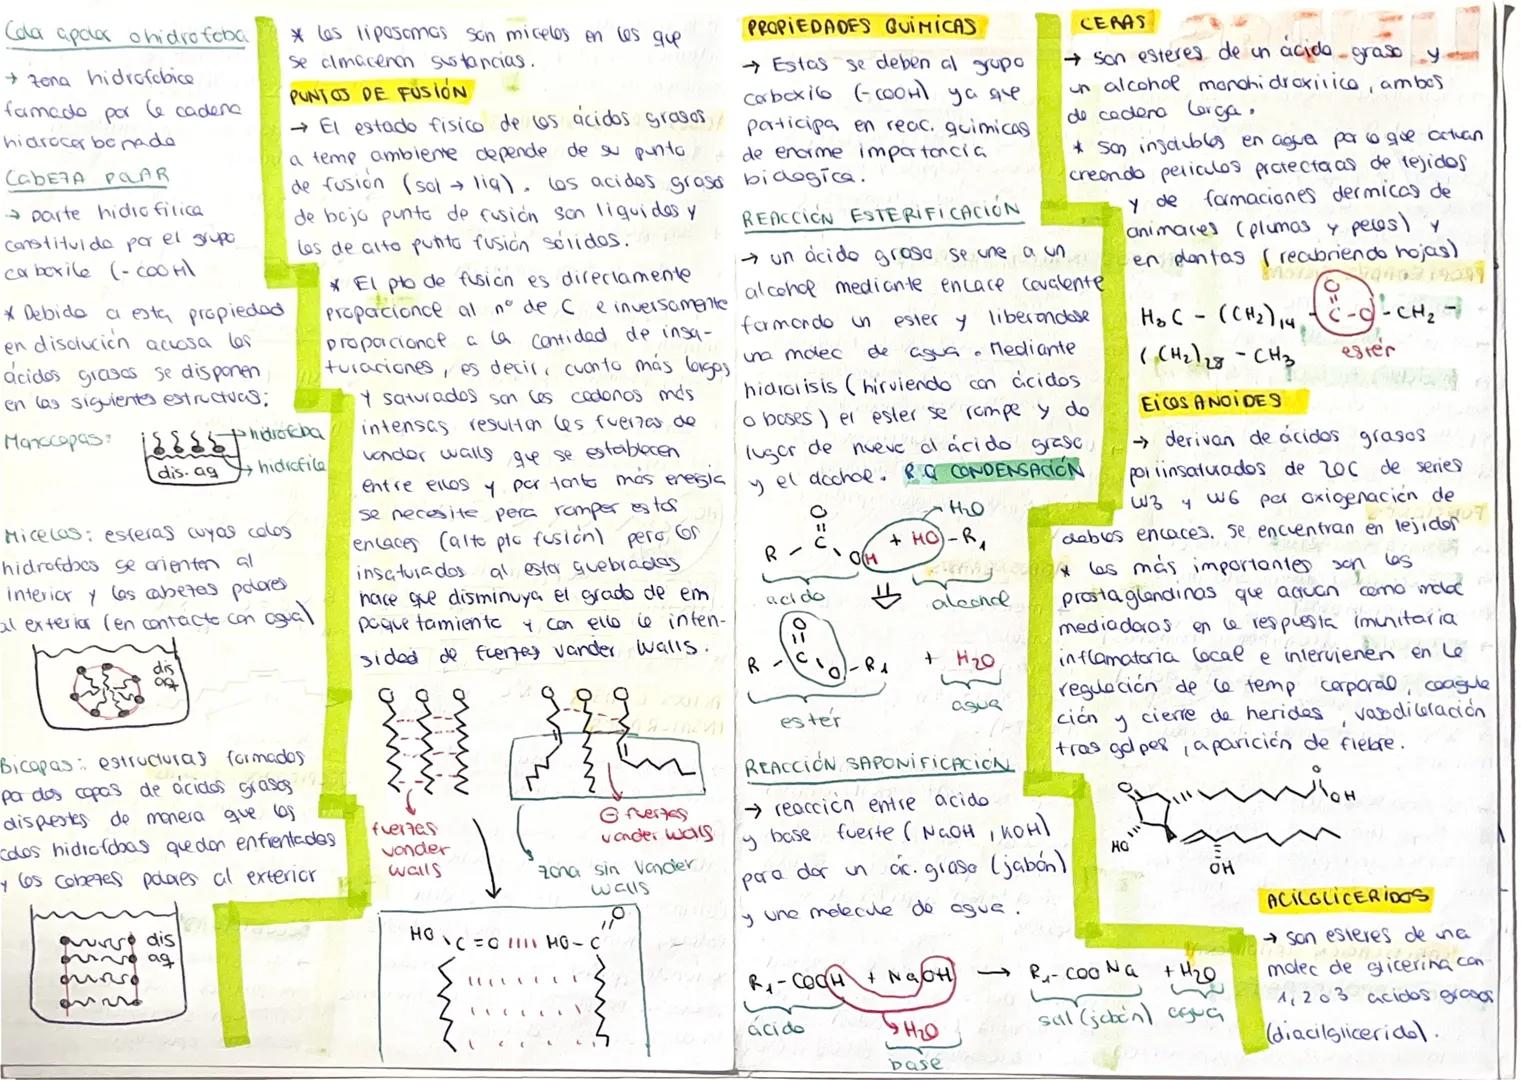 Cola apolar o hidrofoba
→ zona hidrofobica
formada por la cadena
hidrocarbonada
CABEZA POLAR
→ parte hidrofilica
constituida por el grupo
carboxilo (-COOH)
* Debido a esta propiedad
en disolución acuosa los
ácidos grasos se disponen
en las siguientes estructuras:
Monocapas:
hidrofoba
hidrofila
dis. aq
Micelas: esferas cuyas colas
hidrofobas se orientan al
interior y las cabezas polares
al exterior (en contacto con agua)
dis
aq
Bicapas: estructuras formadas
por dos capas de ácidos grasos
dispuestos de manera que las
colas hidrofobas quedan enfrentadas
y las cabezas polares al exterior
dis
aq
* los liposomas son micelas en las que
se almacenan sustancias.
PUNTOS DE FUSIÓN
→ El estado fisico de los ácidos grasos
a temp ambiente depende de su punto
de fusión (sol → liq). Los acidos grasos
de bajo punto de fusión son liquidos y
los de alto punto fusión sólidos.
* El pto de fusión es directamente
proporcional al nº de C e inversamente
proporcional a la cantidad de insa-
turaciones, es decir, cuanto más largas
y saturadas son las cadenas más
intensas resultan las fuerzas de
vander walls que se establecen
entre ellos y por tanto más energia
se necesita para romper estos
enlaces (alto pto fusión) pero los
insaturados al estar quebradas
hace que disminuya el grado de em
paquetamiento y con ello la inten-
sidad de fuerzas vander walls.
fuerzas
vander
walls
⊖ fuerzas
vander walls
zona sin vander
walls
HO
C = O IIII HO - C
O
PROPIEDADES QUIMICAS
→ Estas se deben al grupo
carboxilo (-COOH) ya que
participa en reac. quimicas
de enorme importancia
biologica.
REACCIÓN ESTERIFICACIÓN
→ un ácido graso se une a un
alcohol mediante enlace covalente
formando un ester y liberandose
una molec de agua. Mediante
hidrolisis (hirviendo con ácidos
o bases) el ester se rompe y da
lugar de nuevo al ácido graso
y el alcohol. R.Q CONDENSACIÓN
O
H2O
R - C - OH + HO - R1
acido
alcohol
O
R - C - O - R1 + H2O
ester
agua
REACCIÓN SAPONIFICACIÓN
→ reacción entre ácido
y base fuerte (NaOH, KOH)
para dar un ác. graso (jabón)
y una molecula de agua.
R1 - COOH + NaOH → R1 - COO Na + H2O
ácido
H2O
base
sal (jabón)
agua
CERAS
→ son esteres de un ácido graso y
un alcohol monohidroxilico, ambos
de cadena larga.
* son insolubles en agua por lo que actuan
creando peliculas protectoras de tejidos
y de formaciones dermicas de
animales (plumas y pelos) y
en plantas (recubriendo hojas)
O
H3C - (CH2)14 - C - O - CH2 -
(CH2)28 - CH3
ester
EICOSANOIDES
→ derivan de ácidos grasos
poliinsaturados de 20C de series
W3 y W6 por oxigenación de
dobles enlaces. Se encuentran en tejidos
* las más importantes son las
prostaglandinas que actuan como molec
mediadoras en la respuesta inmunitaria
inflamatoria local e intervienen en la
regulación de la temp corporal, coagula
ción y cierre de heridas, vasodilatación
tras golpes, aparición de fiebre.
O
O
OH
HO
OH
ACILGLICERIDOS
→ son esteres de una
molec de glicerina con
1, 2 o 3 acidos grasos
(diacilglicerido).